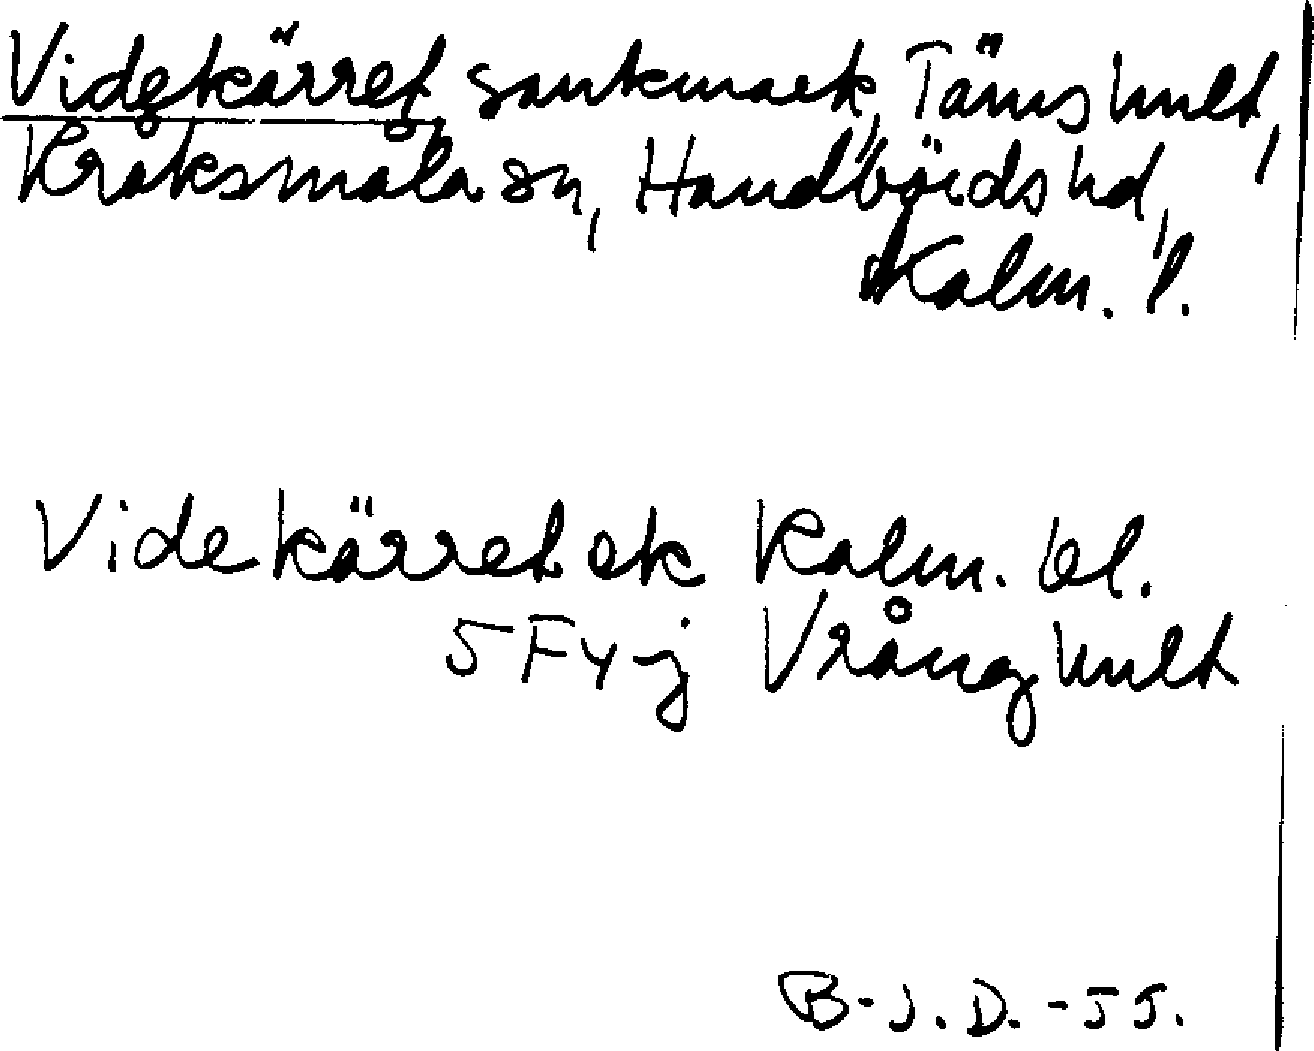 Videkärret, sankmark, Tämshult,
Kråksmåla sn, Handbörds hd,
Kalm. l.
Videkärret ek Kalm. bl.
5 F y j Vrånghult
B-J.D. -55.